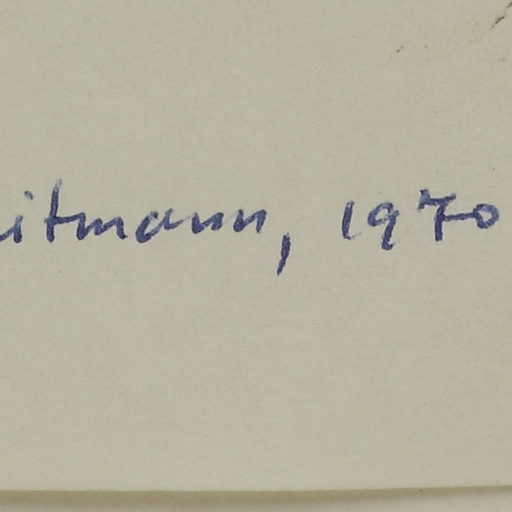 itmann, 1970